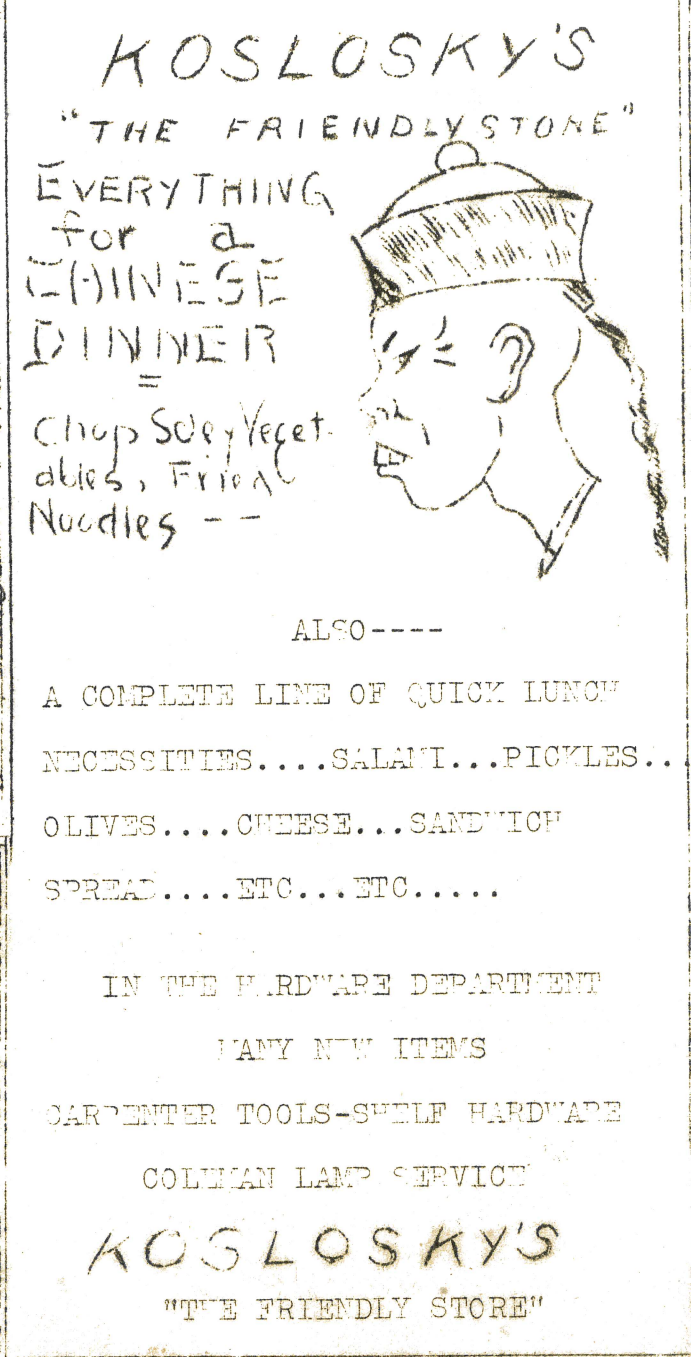 KOSLOSKY'S
"THE FRIENDLY STORE"
EVERYTHING
for a
CHINESE
DINNER
=
Chop Suey Veget-
ables, Fried
Noodles --
ALSO----
A COMPLETE LINE OF QUICK LUNCH
NECESSITIES....SALAMI...PICKLES...
OLIVES....CHEESE...SANDWICH
SPREAD....ETC...ETC.....
IN THE HARDWARE DEPARTMENT
MANY NEW ITEMS
CARPENTER TOOLS-SHELF HARDWARE
COLEMAN LAMP SERVICE
KOSLOSKY'S
"THE FRIENDLY STORE"